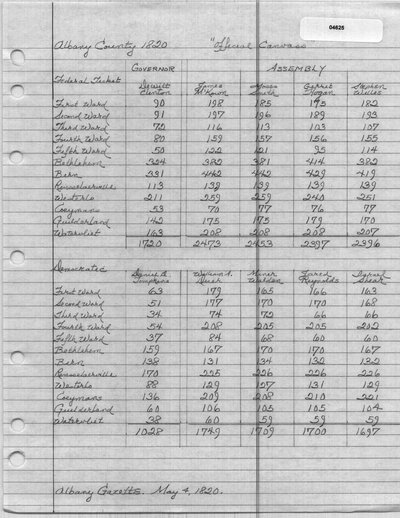 04625
Albany County 1820 "Official Canvass
GOVERNOR ASSEMBLY
Federal Ticket Dewitt Clinton James McKown Moses Smith Garret Hogan Stephen Willes
First Ward 90 198 185 195 182
Second Ward 91 197 196 189 193
Third Ward 72 116 113 103 107
Fourth Ward 80 159 157 156 155
Fifth Ward 50 122 121 95 114
Bethlehem 324 382 381 414 382
Bern 331 442 442 429 419
Rensselaerville 113 139 139 139 139
Westerlo 211 259 259 240 251
Coeymans 53 70 77 76 77
Guilderland 142 175 175 179 170
Watervliet 163 208 208 208 207
1720 2473 2453 2397 2396
Democratic Daniel D. Tompkins William A. Duer Miner Walden Jared Reynolds Shear
First Ward 63 179 165 166 163
Second Ward 51 177 170 170 168
Third Ward 34 74 72 66 66
Fourth Ward 54 208 205 205 202
Fifth Ward 37 84 68 60 60
Bethlehem 159 167 170 170 167
Bern 138 131 134 132 132
Rensselaerville 170 225 226 226 226
Westerlo 88 129 127 131 129
Coeymans 136 209 208 210 221
Guilderland 60 106 105 105 104
Watervliet 38 60 59 59 59
1028 1749 1709 1700 1697
Albany Gazette. May 4, 1820.